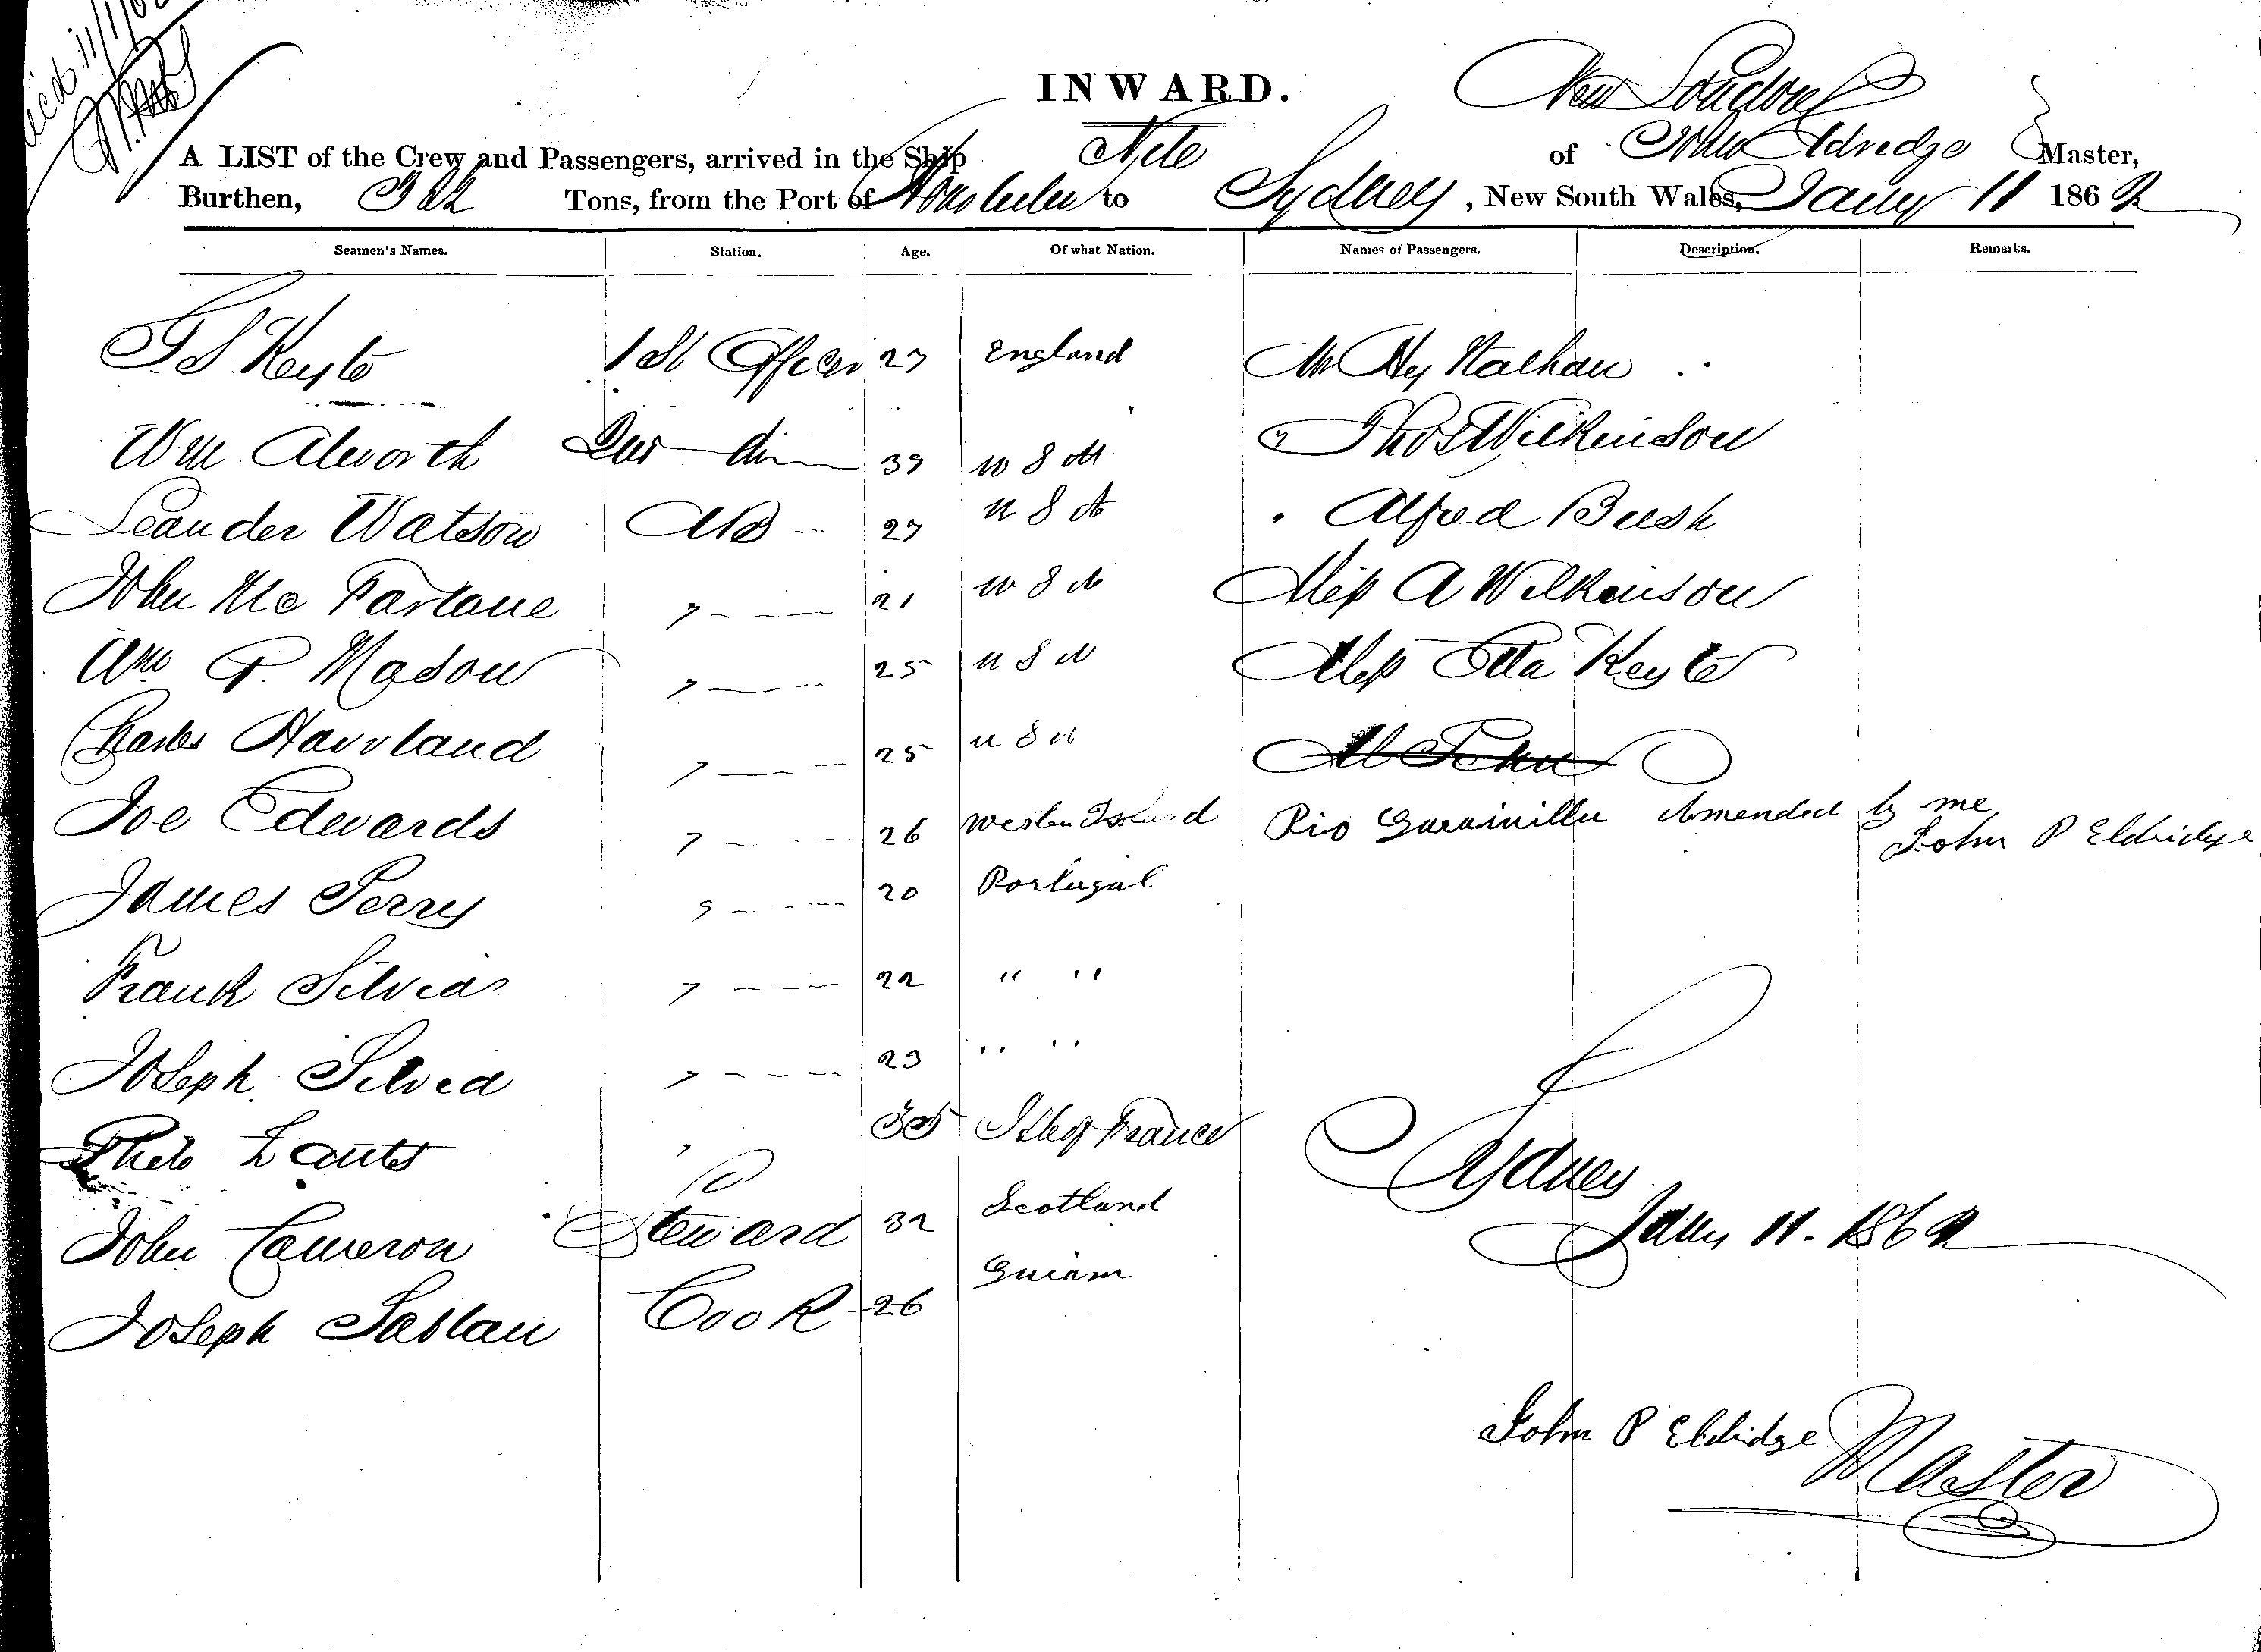 INWARD.
New London
A LIST of the Crew and Passengers, arrived in the Ship Nile of John Eldredge Master,
Burthen, Tons, from the Port of Honolulu to Sydney, New South Wales, Jany 11 1862
Seamen's Names. Station. Age. Of what Nation. Names of Passengers. Description. Remarks.
Keyte 1st Officer 27 England Mr Hy Nathan
Wm Alworth 39 U S A " Thos Wilkinson
Leander Watson AB 27 U S A " Alfred Bush
John McFarlane " 21 U S A Miss A Wilkinson
Wm P. Mason " 25 U S A Miss Etta Keyte
Charles Havvland " 25 U S A
Joe Edwards " 26 Western Island Rio Amended by me
John P Eldridge
James Perry " 20 Portugal
Frank Silvia " 22 " "
Joseph Silvia " 23 " "
" 35 Isle of France
John Cameron Steward 32 Scotland
Joseph Sablan Cook 26 Guiam
Sydney
Jany 11. 1862
John P Eldridge Master